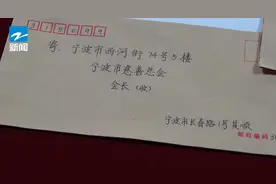 新闻
寄：宁波市西河街74号5楼
宁波市慈善总会
会长（收）
宁波市长春路1号 黄
邮政编码 3